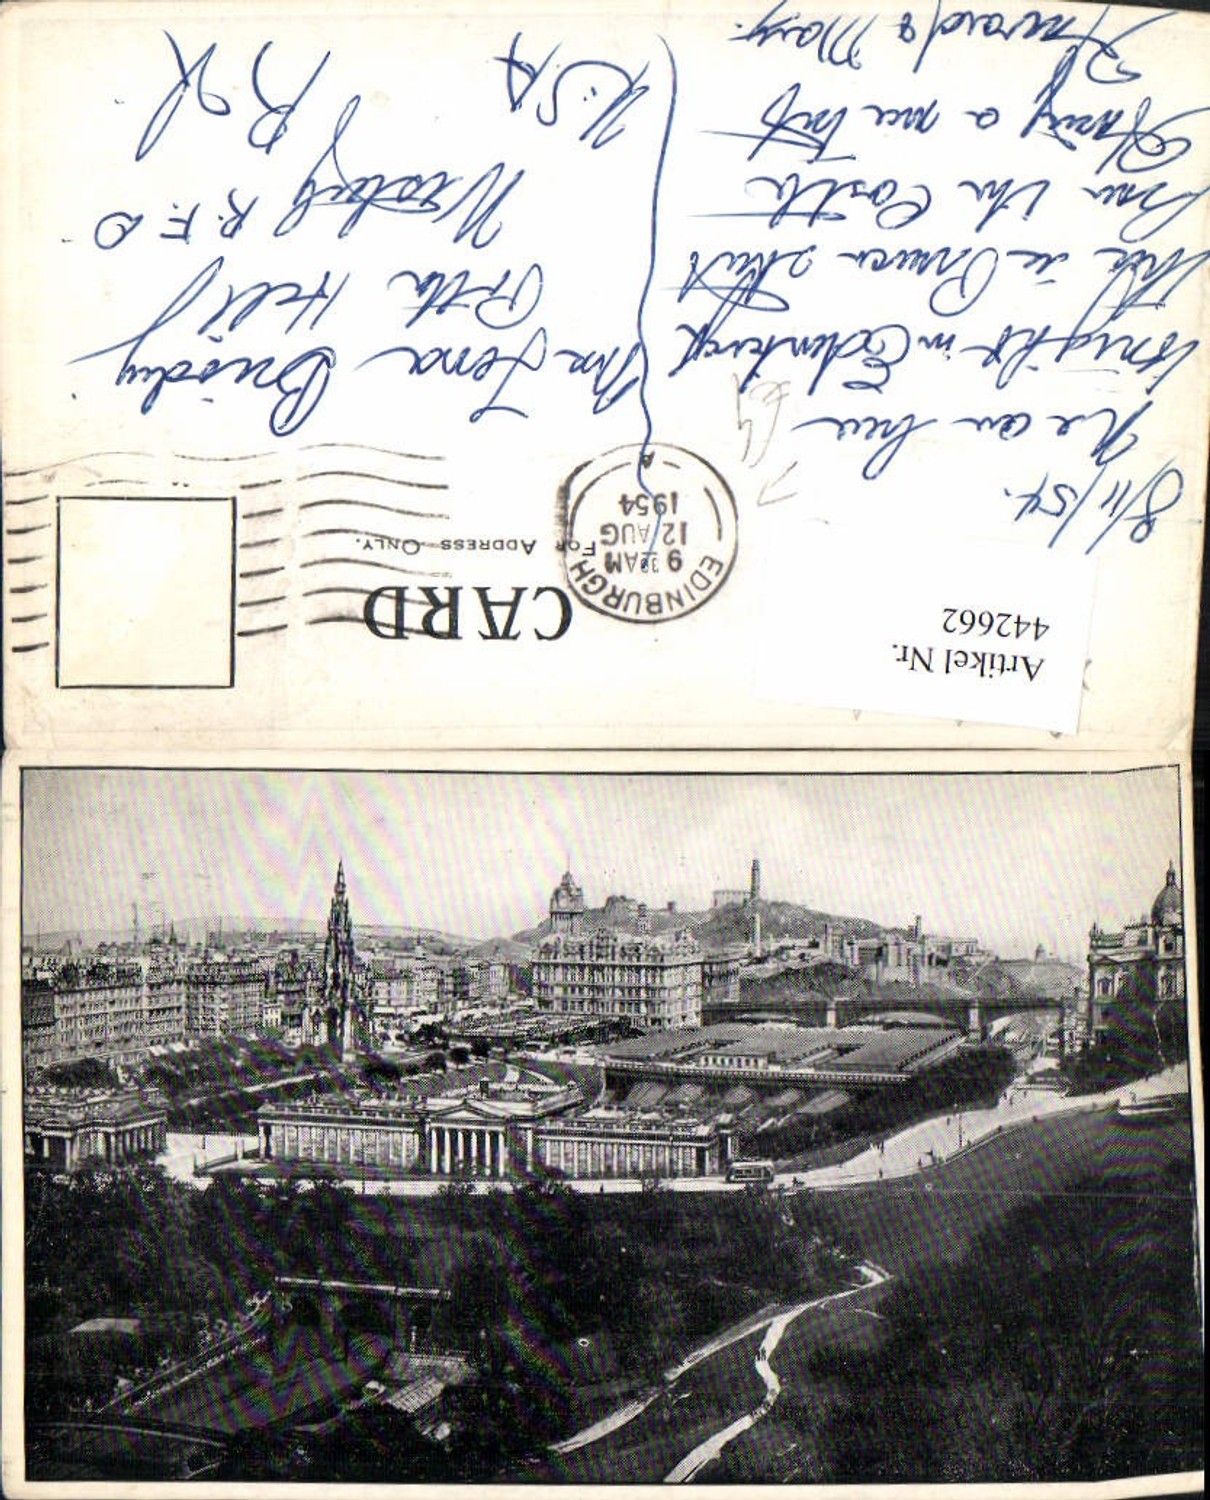 Artikel Nr.
442662
CARD
FOR ADDRESS ONLY.
EDINBURGH
9 30 AM
12 AUG
1954
A
8/11/54.
We are here
tonight in Edinburgh
this is Princes Street
from the Castle
Having a nice trip
Howard & Mary.
Mrs Lena Brindley
Hill
R.F.D
R I
U.S.A